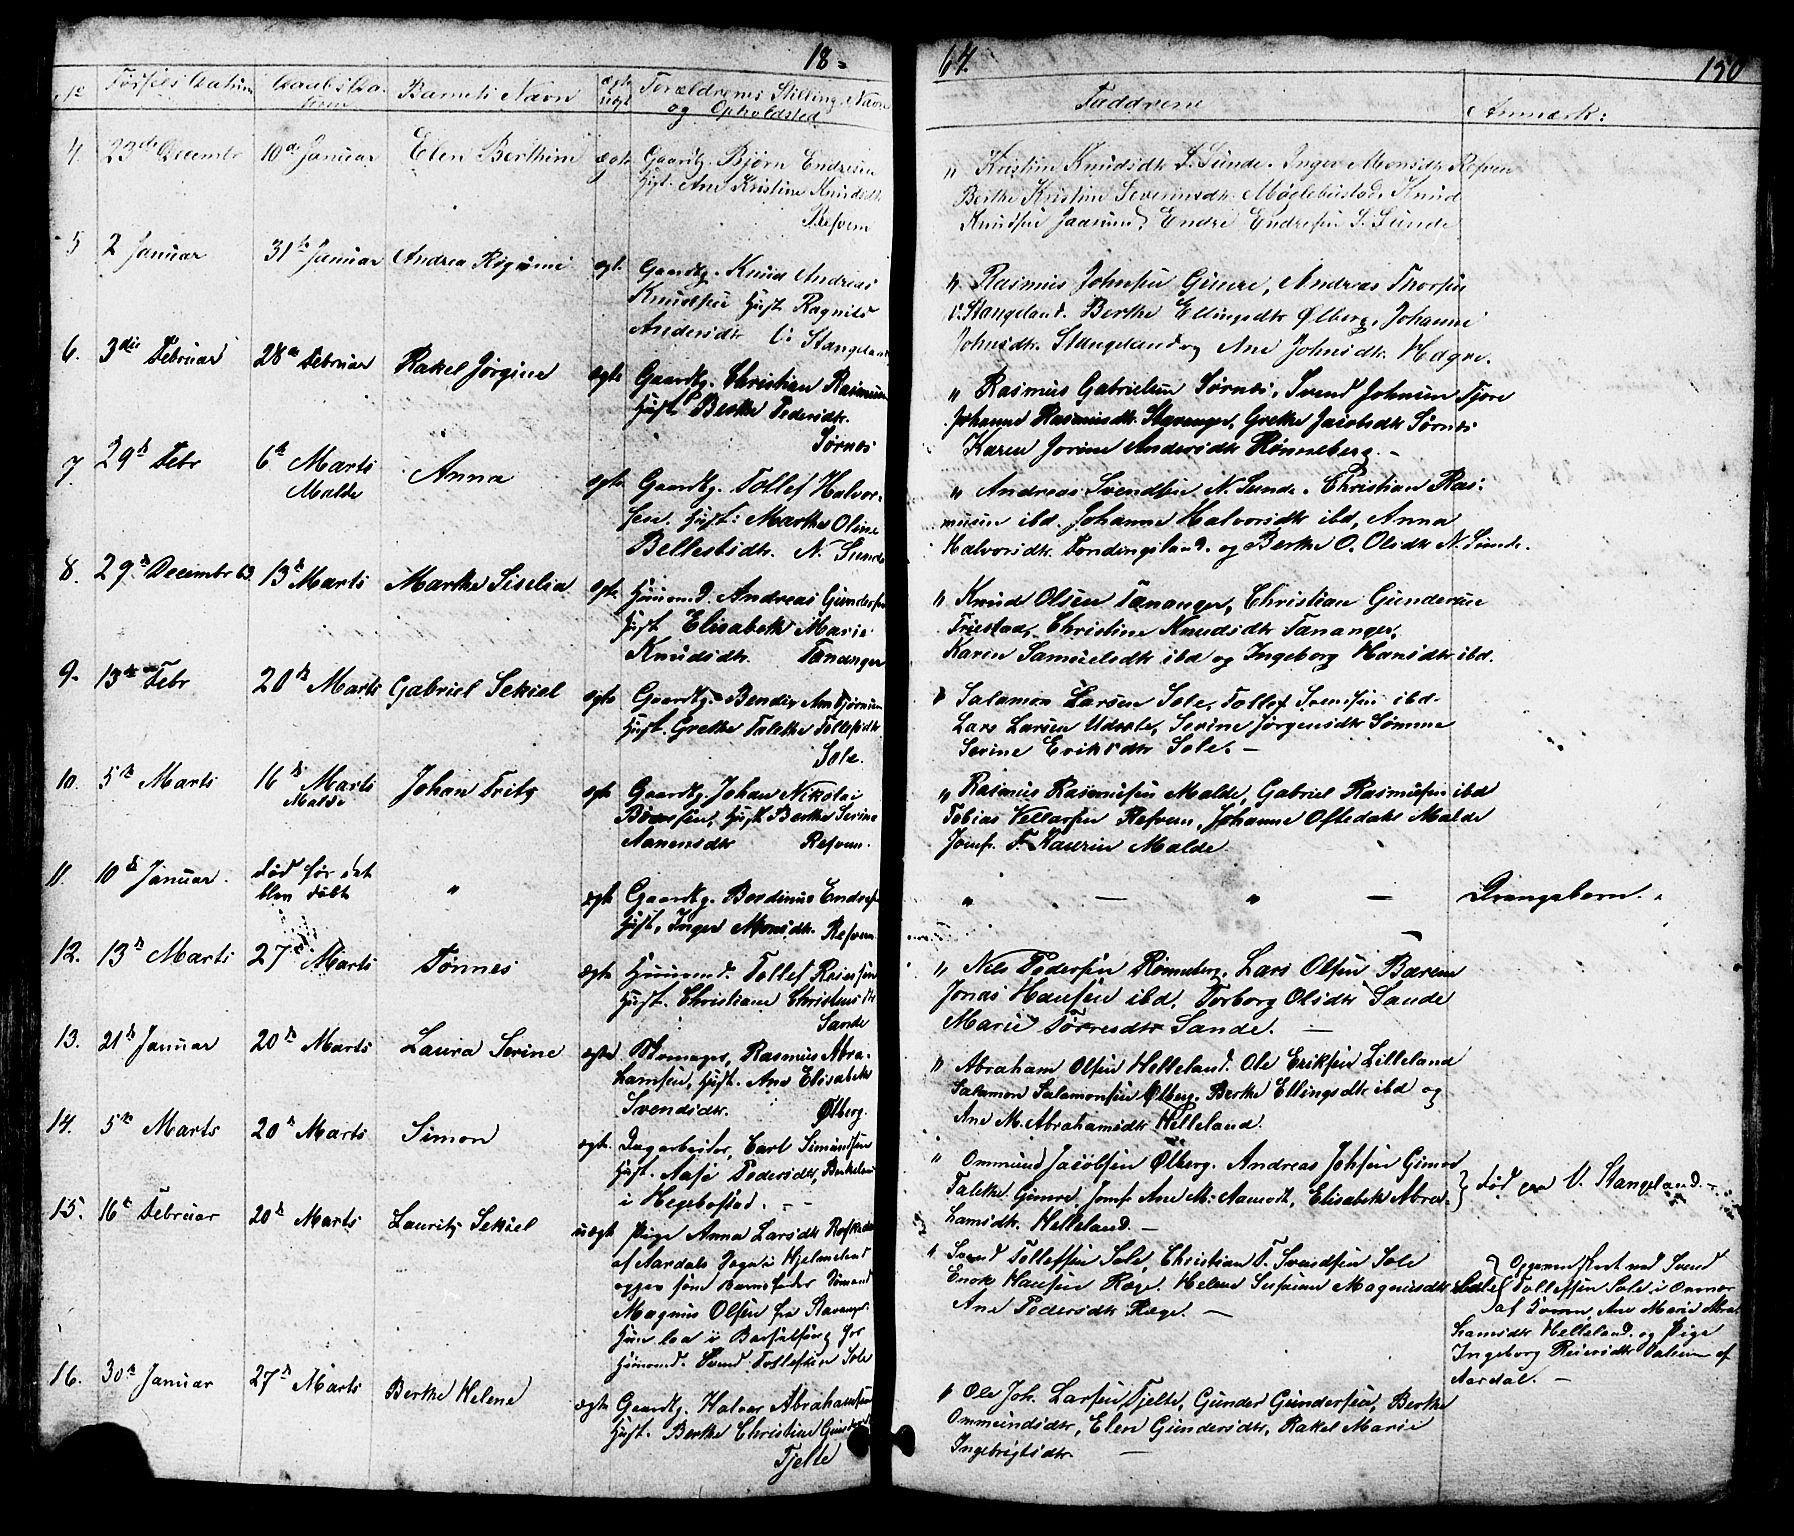 18
64.
150
No Fødsels Datum Daabs Datum Barnets Navn ægte uægte Forældrenes Stilling, Navn og Opholdsted Faddrene Anmærk:
4. 23de Decembr 10de Januar Elen Berthine ægte Gaardbg. Bjørn Endresen
Hust. Ane Kristine Knudsdtr
Refvem
" Kristine Knudsdtr S. Sunde. Inger Monsdtr Refven
Berthe Kristine Severinsdtr. Meglebustad, Knud
Knudsen Jaasund, Endre Endresen S. Sunde
5 2 Januar 31te Januar Andrea Regine ægte Gaardbg. Knud Andreas
Knudsen Hust Ragnild
Andersdtr V: Stangeland
" Rasmus Johnsen Gimre, Andreas Thorsen
V. Stangeland. Berthe Ellingsdtr Ølberg, Johanne
Johnsdtr. Stangeland og Ane Johnsdtr. Hagne.
6. 3die Februar 28de Februar Rakel Jørgine ægte Gaardbg. Christian Rasmusen
Hust. Berthe Pedersdtr.
Sørnes
" Rasmus Gabrielsen Sørnes, Svend Johnsen Tjore
Johanne Rasmusdtr. Stavanger, Grethe Jacobsdtr Sørnes
Karen Jorine Andersdtr Rønneberg. -
7. 29de Febr 6te Marts
Malde Anna ægte Gaardbg. Tollef Halvor-
sen. Hust: Marthe Oline
Bellestsdtr. N. Sunde
" Andreas Svendsen N. Sunde. Christian Ras:
musen ibd. Johanne Halvorsdtr ibd, Anna
Halvorsdtr. Tendingsland. og Berthe O. Olsdtr N. Sunde.
8. 29de Decembr 63. 13de Marts Marthe Siselia ægte Huusmd. Andreas Gundersen
Hust Elisabeth Marie
Knudsdtr. Tananger
" Knud Olsen Tananger, Christian Gundersen
Friestad, Christine Knudsdtr Tananger,
Karen Samuelsdtr ibd og Ingeborg Hansdtr ibd.
9. 13de Febr 20de Marts Gabriel Sekiel ægte Gaardbg. Bendix Annbjørnsen
Hust. Grethe Talethe Tollefsdtr
Sole.
" Salamon Larsen Sole, Tollef Svensen ibd.
Lars Larsen Udsole, Serine Jørgensdtr Sømme
Serine Eriksdtr Sole. -
10. 5te Marts 16de Marts
Malde Johan Fritz ægte Gaardbg. Johan Nikolai
Børesen, Hust Berthe Serine
Aanensdtr Refven.
" Rasmus Rasmusen Malde, Gabriel Rasmusen ibd
Tobias Vellarsen Refven, Johanne Oftedahl Malde
Jomfr. F. Kaurin Malde
11. 10de Januar. død før det
blev døbt " ægte Gaardbg. Berdinus Endresen
Hust, Inger Monsdtr. Refven
" - " - Drengebarn.
12. 13de Marts 27de Marts Tønnes ægte Huusmd. Tollef Reiersen
Hust. Christiane Christensdtr
Sande
" Niels Pedersen Rønneberg. Lars Olsen Bærem
Jonas Hansen ibd. Torborg Olsdtr Sande
Marie Tørresdtr Sande. -
13. 21de Januar 20de Marts Laura Serine ægte Skomager, Rasmus Abra-
hamsen, Hust. Ane Elisabeth
Svendsdtr. Ølberg.
" Abraham Olsen Helleland. Ole Eriksen Lilleland
Salamon Salamonsen Ølberg. Berthe Ellingsdtr ibd og
Ane M. Abrahamsdtr Helleland.
14. 5te Marts 20de Marts Simon ægte. Dagarbeider, Carl Simundsen
Hust. Aase Pedersdtr, Birkeland
i Hegebostad. -
" Ommund Jacobsen Ølberg. Andreas Johsen Gimre
Talethe Gimre, Jomfr Ane M. Aamodt, Elisabeth Abra-
hamsdtr. Helleland. -
død paa V. Stangeland. -
15. 16de Februar 20de Marts Lauritz Sekiel uægte Pige Anna Larsdtr
af Aardals Sogn i Hjelmeland
opgav som Barnefader Sømand
Magnus Olsen fra Stavanger
Hun laa i Barselseng hos
Huusmd. Svend Tollefsen Sole
" Svend Tollefsen Sole, Christian T. Svendsen Sole
Enok Hansen Ræge. Helene Susanne Magnusdtr Sole
Ane Pedersdtr Ræge. -
Svend
Tollefsen Sole i Onmar
Ane Marie Abra-
hamsdtr Helleland. og Pige
Ingeborg Reiersdtr Valheim af
Aardal. -
16. 30te Januar 27de Marts Berthe Helene ægte Gaardbg. Halvor Abrahamsen
Hust. Berthe Christine Gundersdtr
Tjelte
" Ole Joh. Larsen Tjelte, Gunder Gundersen, Berthe
Ommundsdtr, Elen Gundersdtr, Rakel Marie
Ingebrigtsdtr -